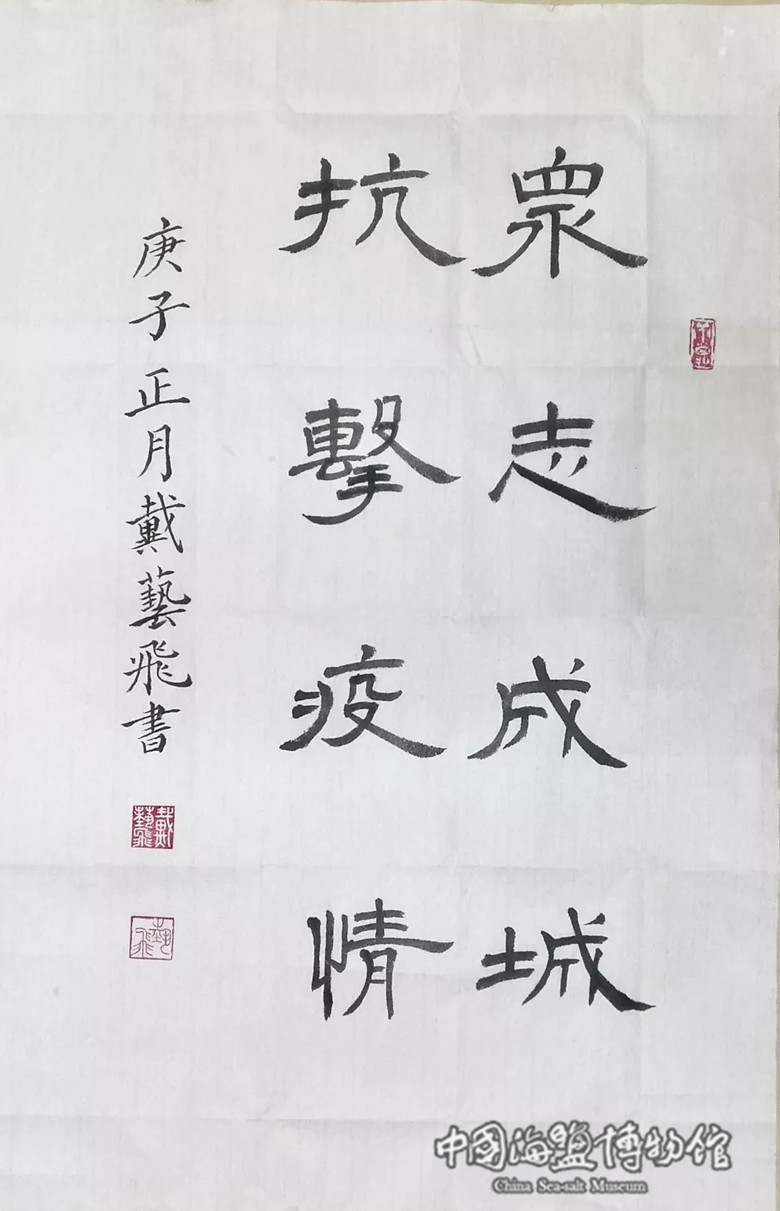 眾志成城
抗擊疫情
庚子正月戴藝飛書
戴藝飛
藝飛
中國海鹽博物館
China Sea-salt Museum